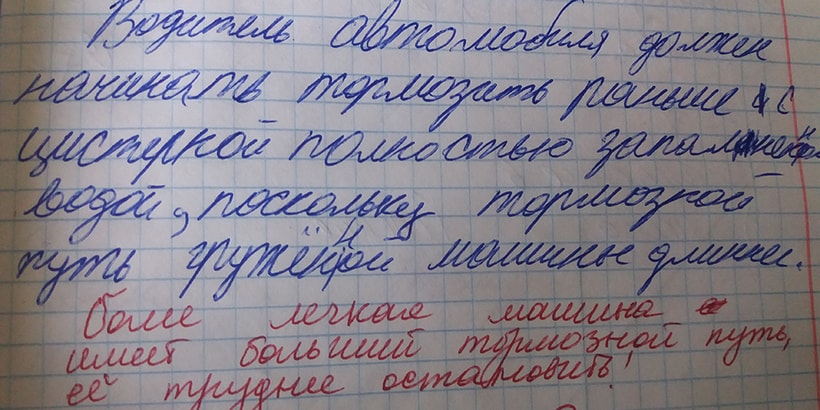 Водитель автомобиля должен
начинать тормозить раньше с
цистерной полностью
водой, поскольку тормозной
путь гружёной машины длинее.
Более легкая машина
имеет больший тормозной путь,
её труднее остановить!